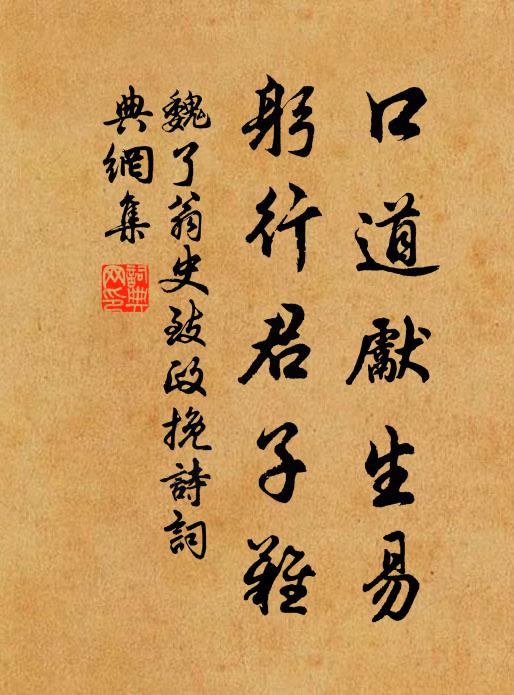 口道獻生易
躬行君子難
魏了翁史致政挽詩詞
典網集
詞典網印